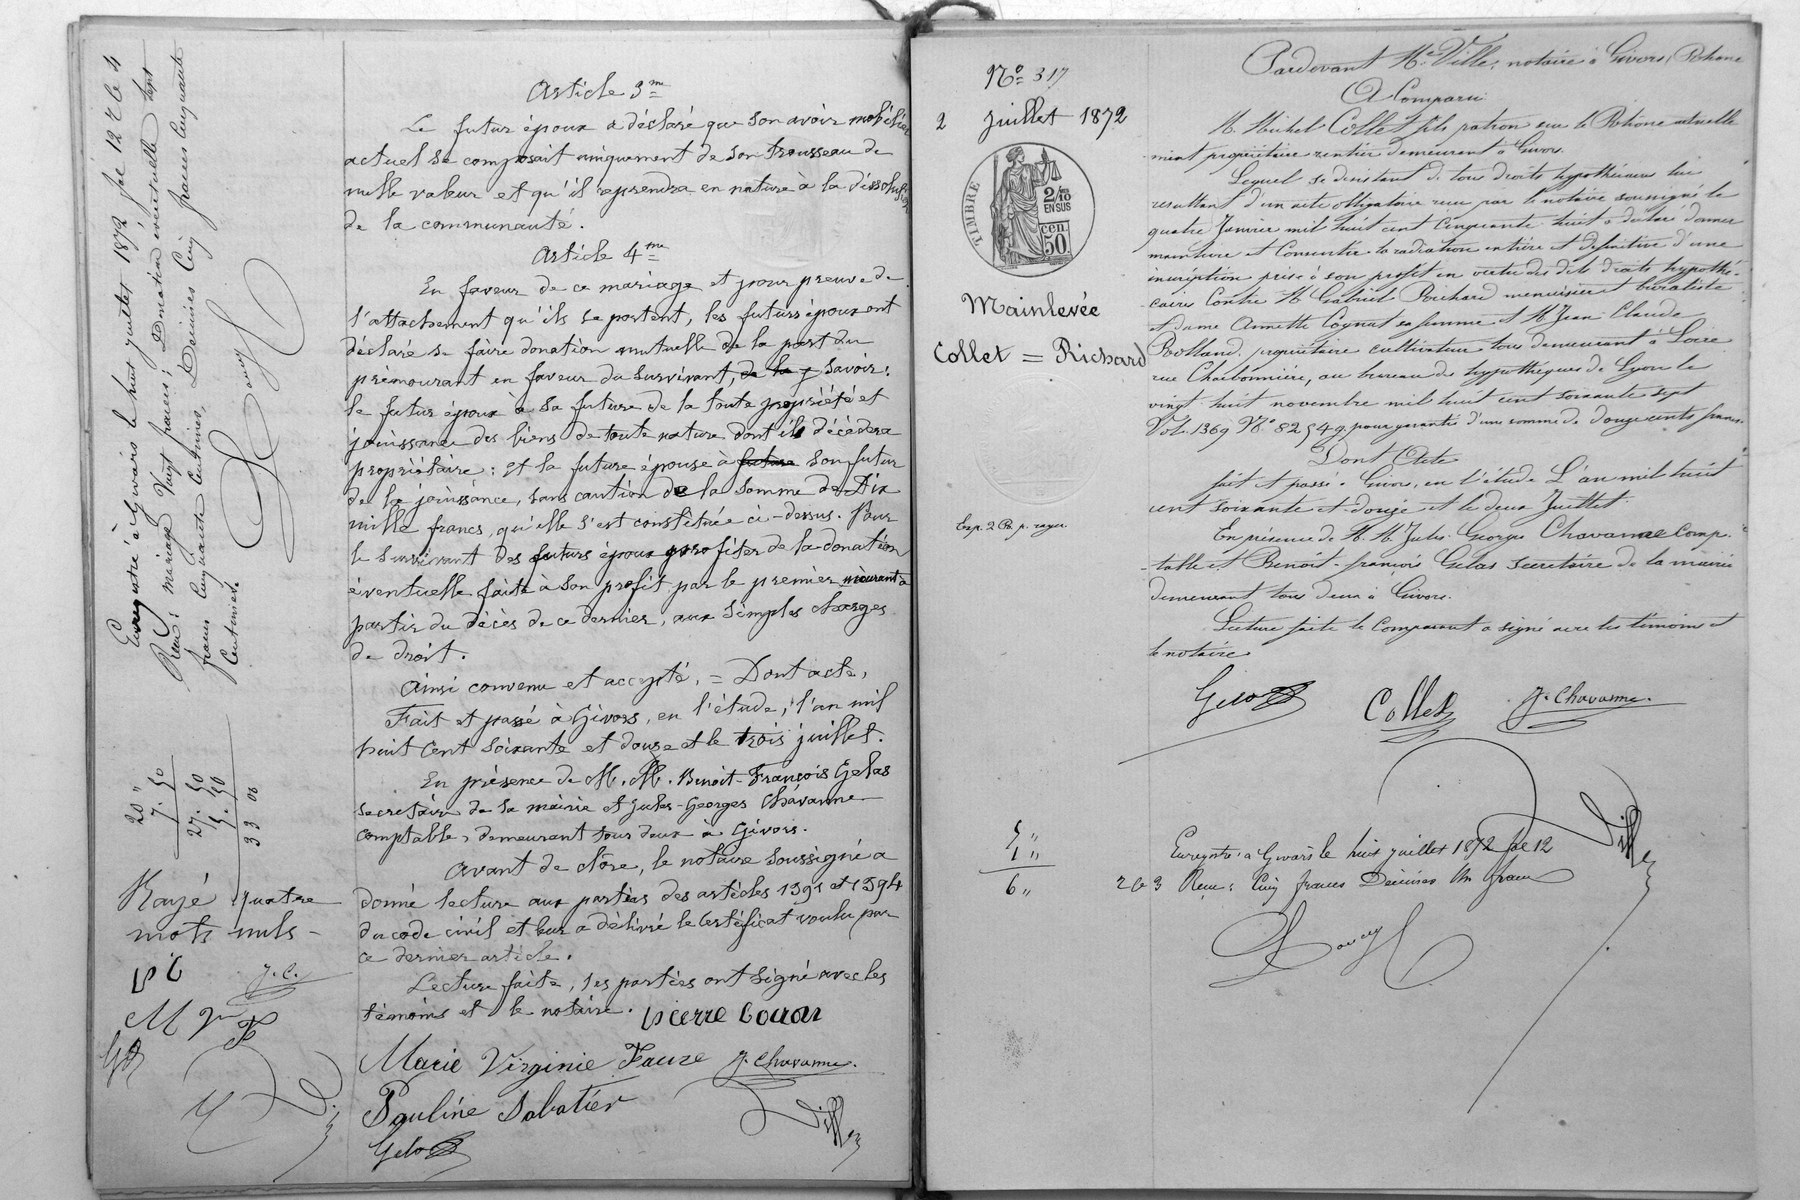 Article 3me
Le futur époux a déclaré que son avoir mobilier
actuel se composait uniquement de son trousseau de
nulle valeur et qu'il reprendra en nature à la dissolution
de la communauté.
Article 4me
En faveur de ce mariage et pour preuve de
l'attachement qu'ils se portent, les futurs époux ont
déclaré se faire donation mutuelle de la part du
prémourant en faveur du survivant, de la savoir:
le futur époux à sa future de la toute propriété et
jouissance des biens de toute nature dont il décèdera
propriétaire: et la future épouse à future son futur
de la jouissance, sans caution de la somme de Dix
mille francs, qu'elle s'est constituée ci-dessus. Pour
le survivant des futurs époux profiter de la donation
éventuelle faite à son profit par le premier mourant à
partir du décès de ce dernier, aux simples charges
de droit.
Ainsi convenu et accepté, = Dont acte,
Fait et passé à Givors, en l'étude, l'an mil
huit cent soixante et douze et le trois juillet.
En présence de M. M. Benoit-François Gelas
secrétaire de la mairie et Jules-Georges Chavanne
comptable, demeurant tous deux à Givors.
Avant de clôre, le notaire soussigné a
donné lecture aux parties des articles 1391 et 1394
du code civil et leur a délivré le certificat voulu par
ce dernier article.
Lecture faite, les parties ont signé avec les
témoins et le notaire. Pierre
Marie Virginie Faure J. Chavanne.
Pauline Sabatier
Enregistré à Givors le huit juillet 1872 fol 12
Reçu: mariage Vingt francs; Donation éventuelle Sept
francs cinquante centimes, Décimes Cinq francs cinquante
Centimes.
20 "
7. 50
27. 50
5. 50
33 00
Rayé quatre
mots nuls -
J. C.
No 317
2 juillet 1872
TIMBRE
2/10
EN SUS
50 cen.
Mainlevée
Collet = Richard
Exp. 2 R. p. rayer.
Pardevant Me Ville, notaire à Givors, Rhône
A Comparu
M. Michel Collet fils patron sur le Rhône actuelle
ment propriétaire rentier demeurant à Givors.
Lequel se désistant de tous droits hypothécaires lui
résultant d'un acte obligatoire reçu par le notaire soussigné le
quatre Janvier mil huit cent cinquante huit a déclaré donner
mainlevée et Consentir la radiation entière et définitive d'une
inscription prise à son profit en vertu des dits droits hypothé-
caires Contre M. Gabriel Richard menuisier et buraliste
et dame Annette Cognat sa femme et M. Jean Claude
Rolland, propriétaire cultivateur tous demeurant à Loire
rue Charbonnière, au bureau des hypothèques de Lyon le
vingt huit novembre mil huit cent soixante sept
Vol. 1369 No 82 pour garantie d'une somme de douze cents francs.
Dont Acte
fait et passé à Givors, en l'étude L'an mil huit
cent soixante et douze et le deux Juillet.
En présence de M. M. Jules Georges Chavanne Comp-
-table et Benoit-françois Gelas secrétaire de la mairie
demeurant tous deux à Givors.
Lecture faite le Comparant a signé avec les témoins et
le notaire.
Collet J. Chavanne.
Ville
5 "
1 "
6 "
Enregistré à Givors le huit juillet 1872 fol 12
Reçu: Cinq francs Décimes Un franc